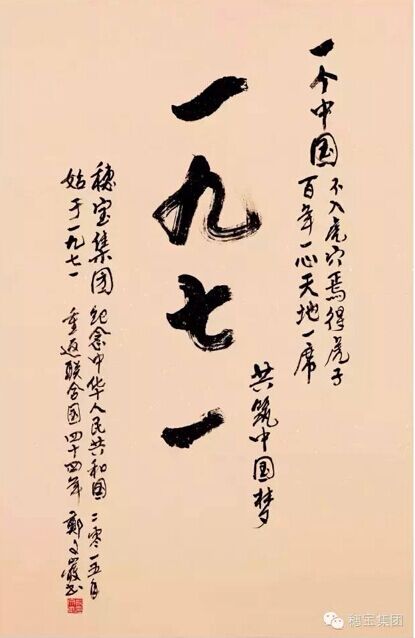 一个中国
不入虎穴焉得虎子
百年一心天地一席
一九七一
共筑中国梦
穗宝集团
始于一九七一
纪念中华人民共和国
重返联合国四十四年
二零一五年
郑文岩书
穗宝集团